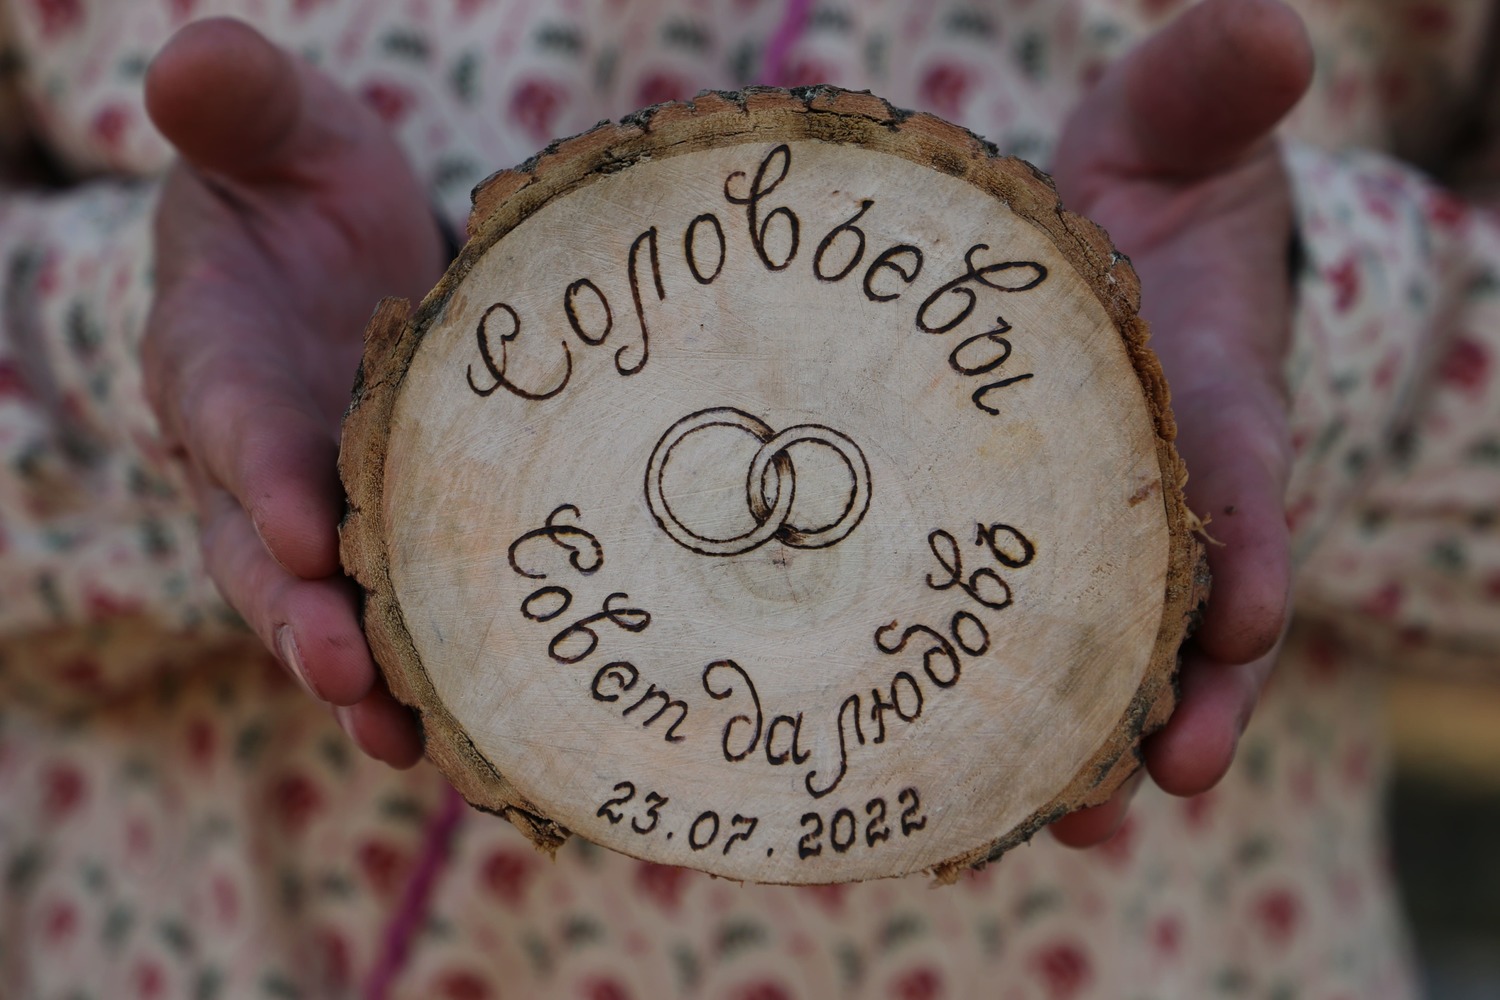 Соловьевы
Совет да любовь
23.07.2022